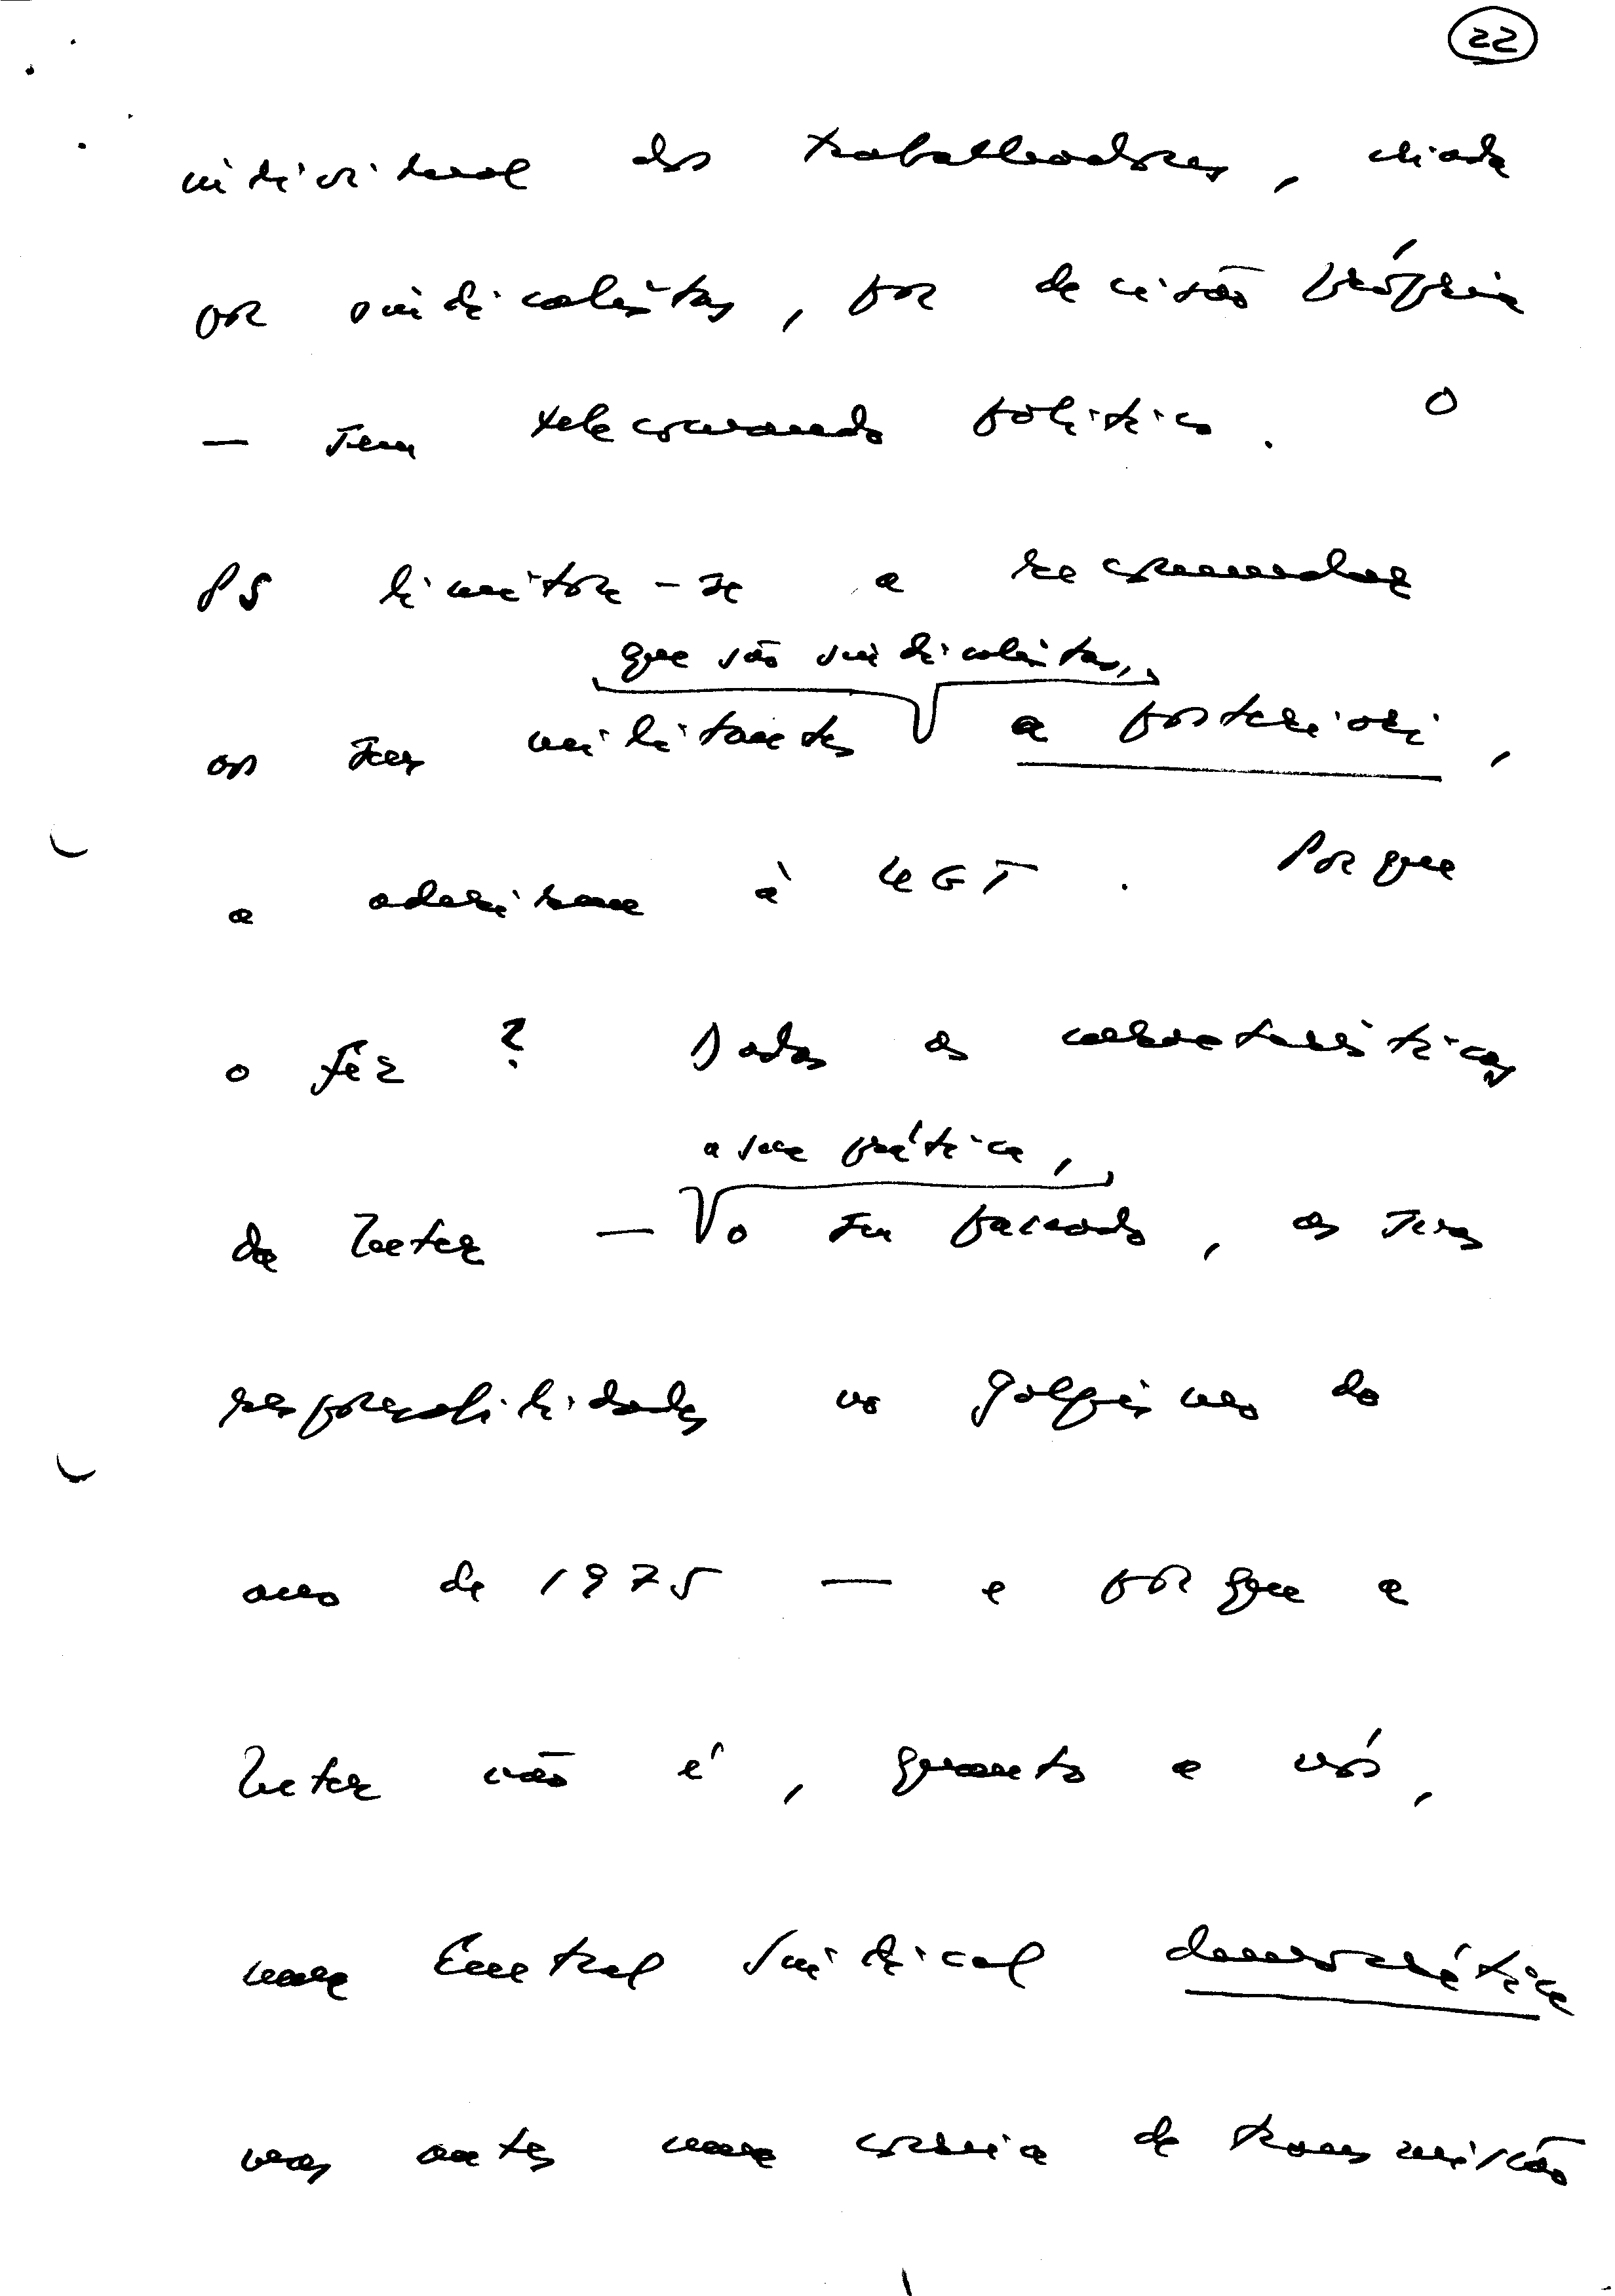 22
individual dos trabalhadores, criada
por sindicalistas, por decisão própria
— sem telecomando político. O
PS limitou-se a recomendar
que são sindicalistas,
aos seus militantes a posteriori,
a aderirem à UGT. Porque
o fêz? Dadas as características
a sua prática,
da Inter — o seu passado, as suas
responsabilidades no golpismo do
ano de 1975 — e porque a
Inter não é, quanto a nós,
uma Central Sindical democrática
mas antes uma correia de transmissão